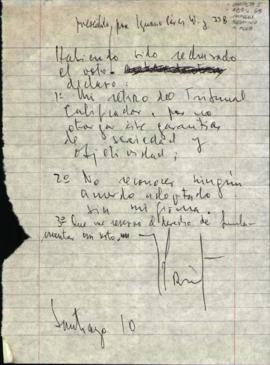 presidido, por Ignacio
Habiendo sido rechazado
el voto
declaro:
1º Mi retiro del Tribunal
Calificador, por no
otorgar éste garantías
de seriedad y
objetividad;
2º No reconocer ningún
acuerdo adoptado
sin mi firma.
3º Que me reservo el derecho de funda-
mentar mi voto,
Santiago 10